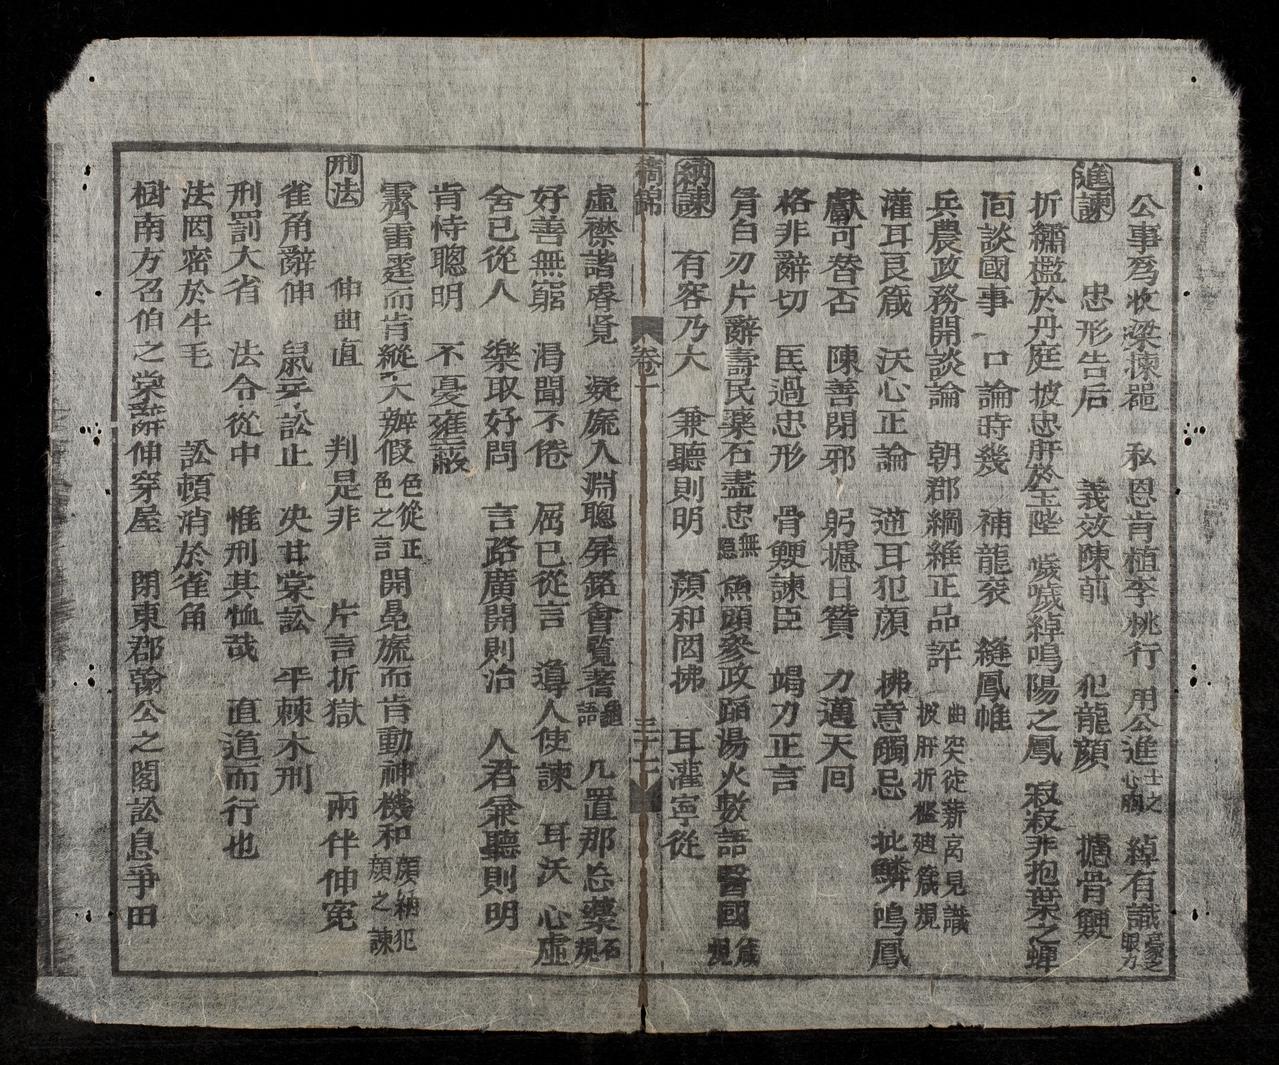 公事爲收梁揀器 私恩肯植李桃行 用公進士之心廟 綽有識意象之眼力
進諫 忠形告后 義效陳前 犯龍顔 攄骨鯁
折繡檻於丹庭 披忠肝於玉陛 噦噦綽鳴陽之鳳 寂寂非抱葉之蟬
面談國事 口論時幾 補龍袞 縫鳳帷
兵農政務開談論 朝郡綱維正品評 曲突徙薪高見識 披肝折檻廸箴規
灌耳良箴 沃心正論 逆耳犯顔 拂意觸忌 批鱗鳴鳳
獻可替否 陳善閉邪 躬攄日贊 力邁天回
格非辭切 匡過忠形 骨鯁諫臣 竭力正言
膂白刃片辭壽民藥石盡忠無隱 魚頭參政蹈湯火數語醫國箴規
納諫 有容乃大 兼聽則明 顔和罔拂 耳灌寧從
摘錦 卷一 三十七
虛襟諧睿覽 凝旒入淵聰屛銘會覧著龜語 几置那忘藥石規
好善無窮 渴聞不倦 屈已從言 導人使諫 耳沃 心虛
舍已從人 樂取好問 言路廣開則治 人君兼聽則明
肯恃聰明 不憂壅蔽
霽雷霆而肯縱天辦假色從正色之言 開冕旒而肯動神機和顔納犯顔之諫
刑法 伸曲直 判是非 片言折獄 兩伴伸冤
雀角辭伸 鼠牙訟止 决甘棠訟 平棘木刑
刑罰大省 法令從中 惟刑其恤哉 直道而行也
法罔密於牛毛 訟頓消於雀角
樹南方召伯之棠辭伸穿屋 閉東郡韓公之閣訟息爭田